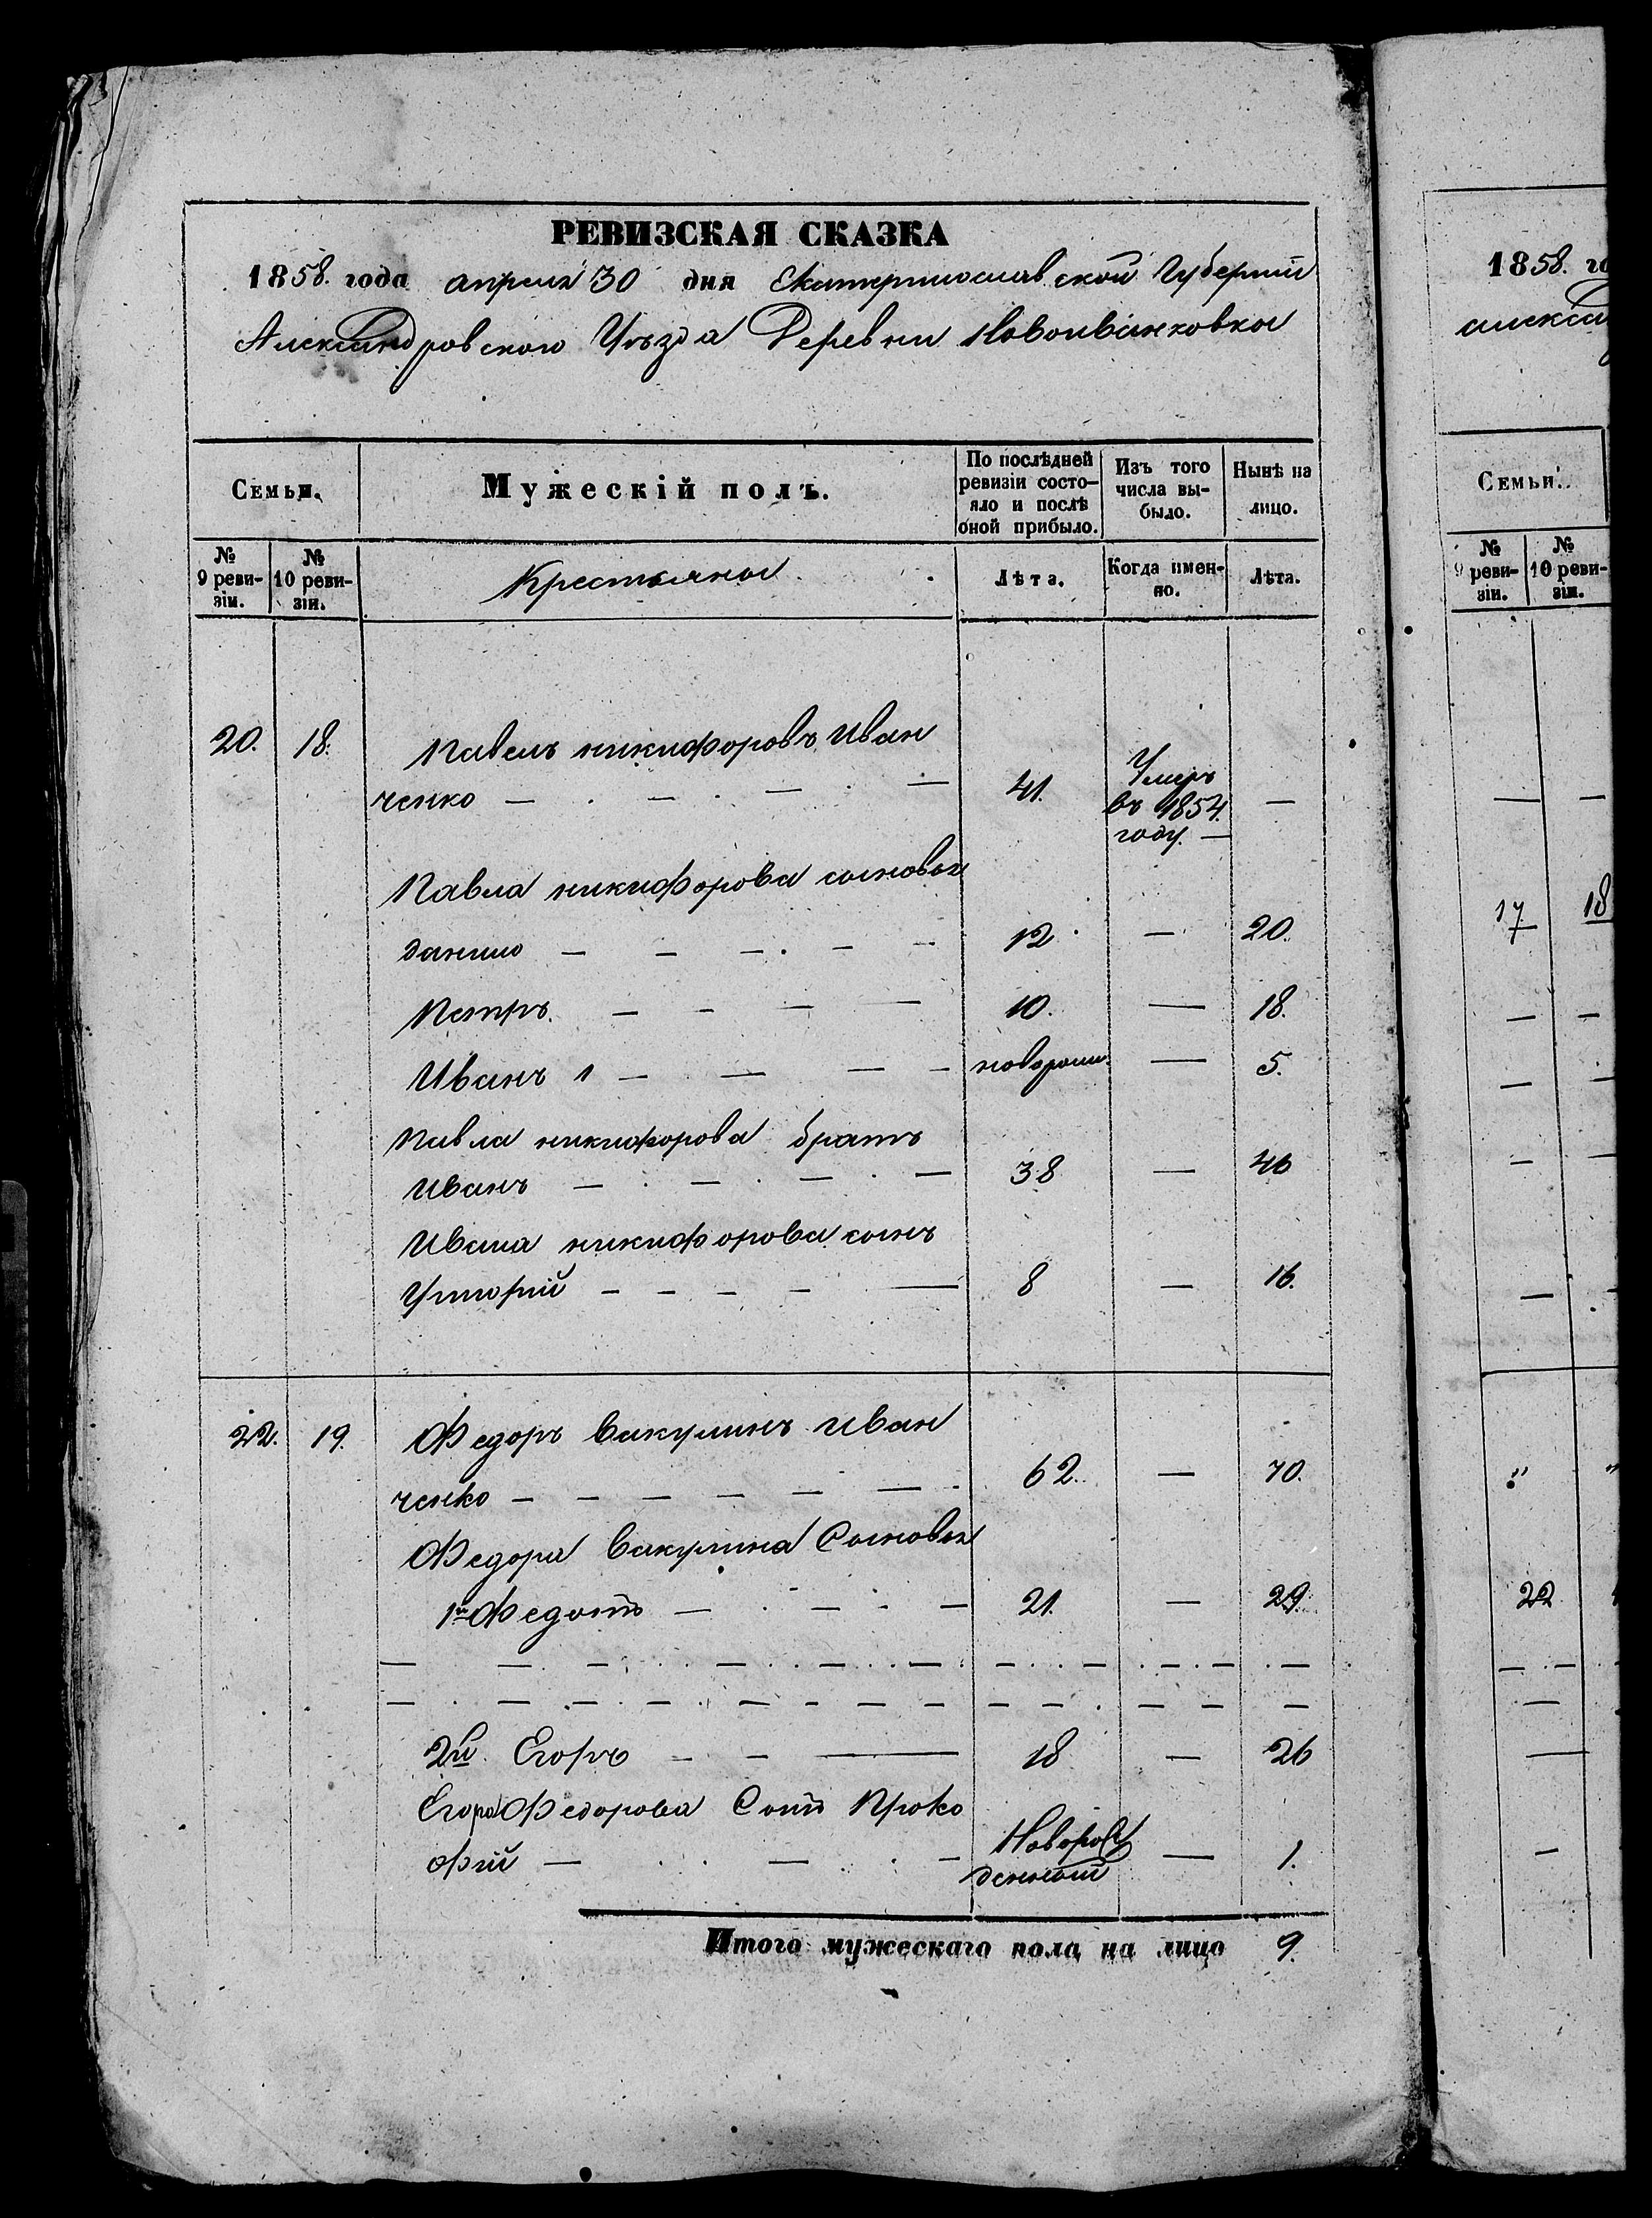 РЕВИЗСКАЯ СКАЗКА
1858. года апреля 30 дня Екатеринославской Губернии
Александровского Уѣзда Деревни Новоиванковки
Семьи.
Мужескій полъ.
По послѣдней ревизіи состо-
яло и послѣ
оной прибыло.
Изъ того
числа вы-
было.
Нынѣ на
лицо.
№ 9 реви-
зіи.
№ 10 реви-
зіи.
Крестьяне
Лѣта.
Когда имен-
но.
Лѣта.
20. 18. Павелъ никифоровъ Иван
ченко — — — — 41. Умеръ
въ 1854.
году. — —
Павла никифорова сыновья
данило — — — — — 12 — 20.
Петръ. — — — — 10. — 18.
Иванъ 1 — — — — новорож. — 5.
Павла никифорова братъ
Иванъ — — — — 38 — 46
Ивана никифорова сынъ
— — — — — 8 — 16.
22. 19. Федоръ Вакулинъ Иван
ченко — — — — — — 62. — 70.
Федора Вакулина Сыновья
1й Федотъ — — — — 21. — 29.
2й. Егоръ — — — 18 — 26
Егора Федорова Сынъ Проко
фій — — — Новорож
денный — 1.
Итого мужескаго пола на лицо 9.
1858. го
алекса
Семьи.
№ 9 реви-
зіи.
№ 10 реви-
зіи.
17 18
— —
— —
— —
— —
" "
22